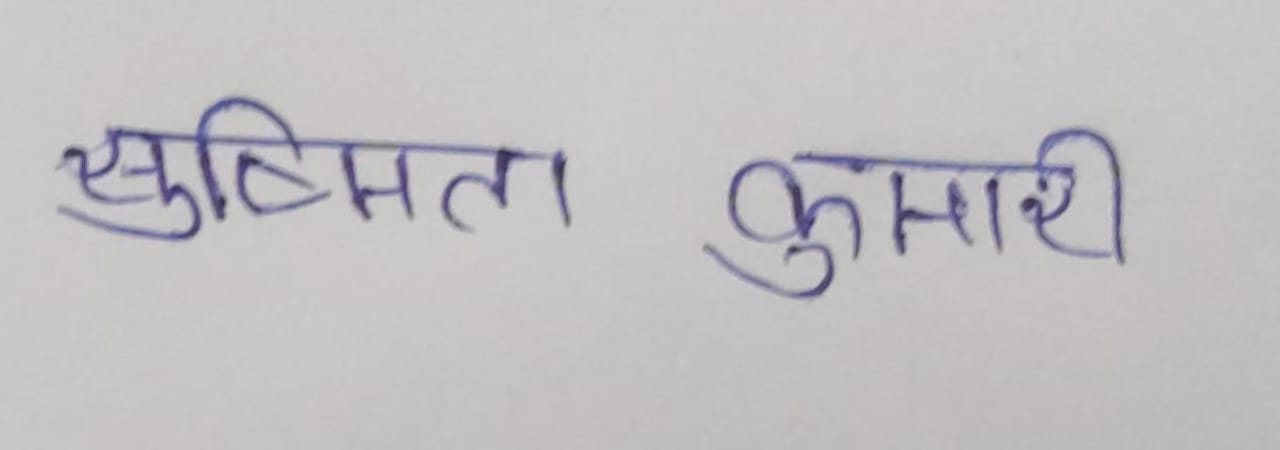 सुष्मिता कुमारी